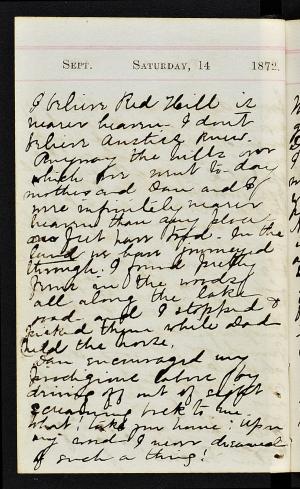 SEPT. SATURDAY, 14 1872.
I believe Red Hill is
nearer heaven. I don't
believe Anstice knew.
Anyway the hills over
which we went to-day
mother and Dan and I
were infinitely nearer
heaven than any place
our feet have trod. In the
land we have journeyed
through. I found pretty
ferns in the woods
all along the lake
road, and I stopped &
picked them while Dad
held the horse.
Dan encouraged my
prodigious labors by
driving off out of sight
screaming back to me
What! take you home! Upon
my soul I never dreamed
of such a thing!